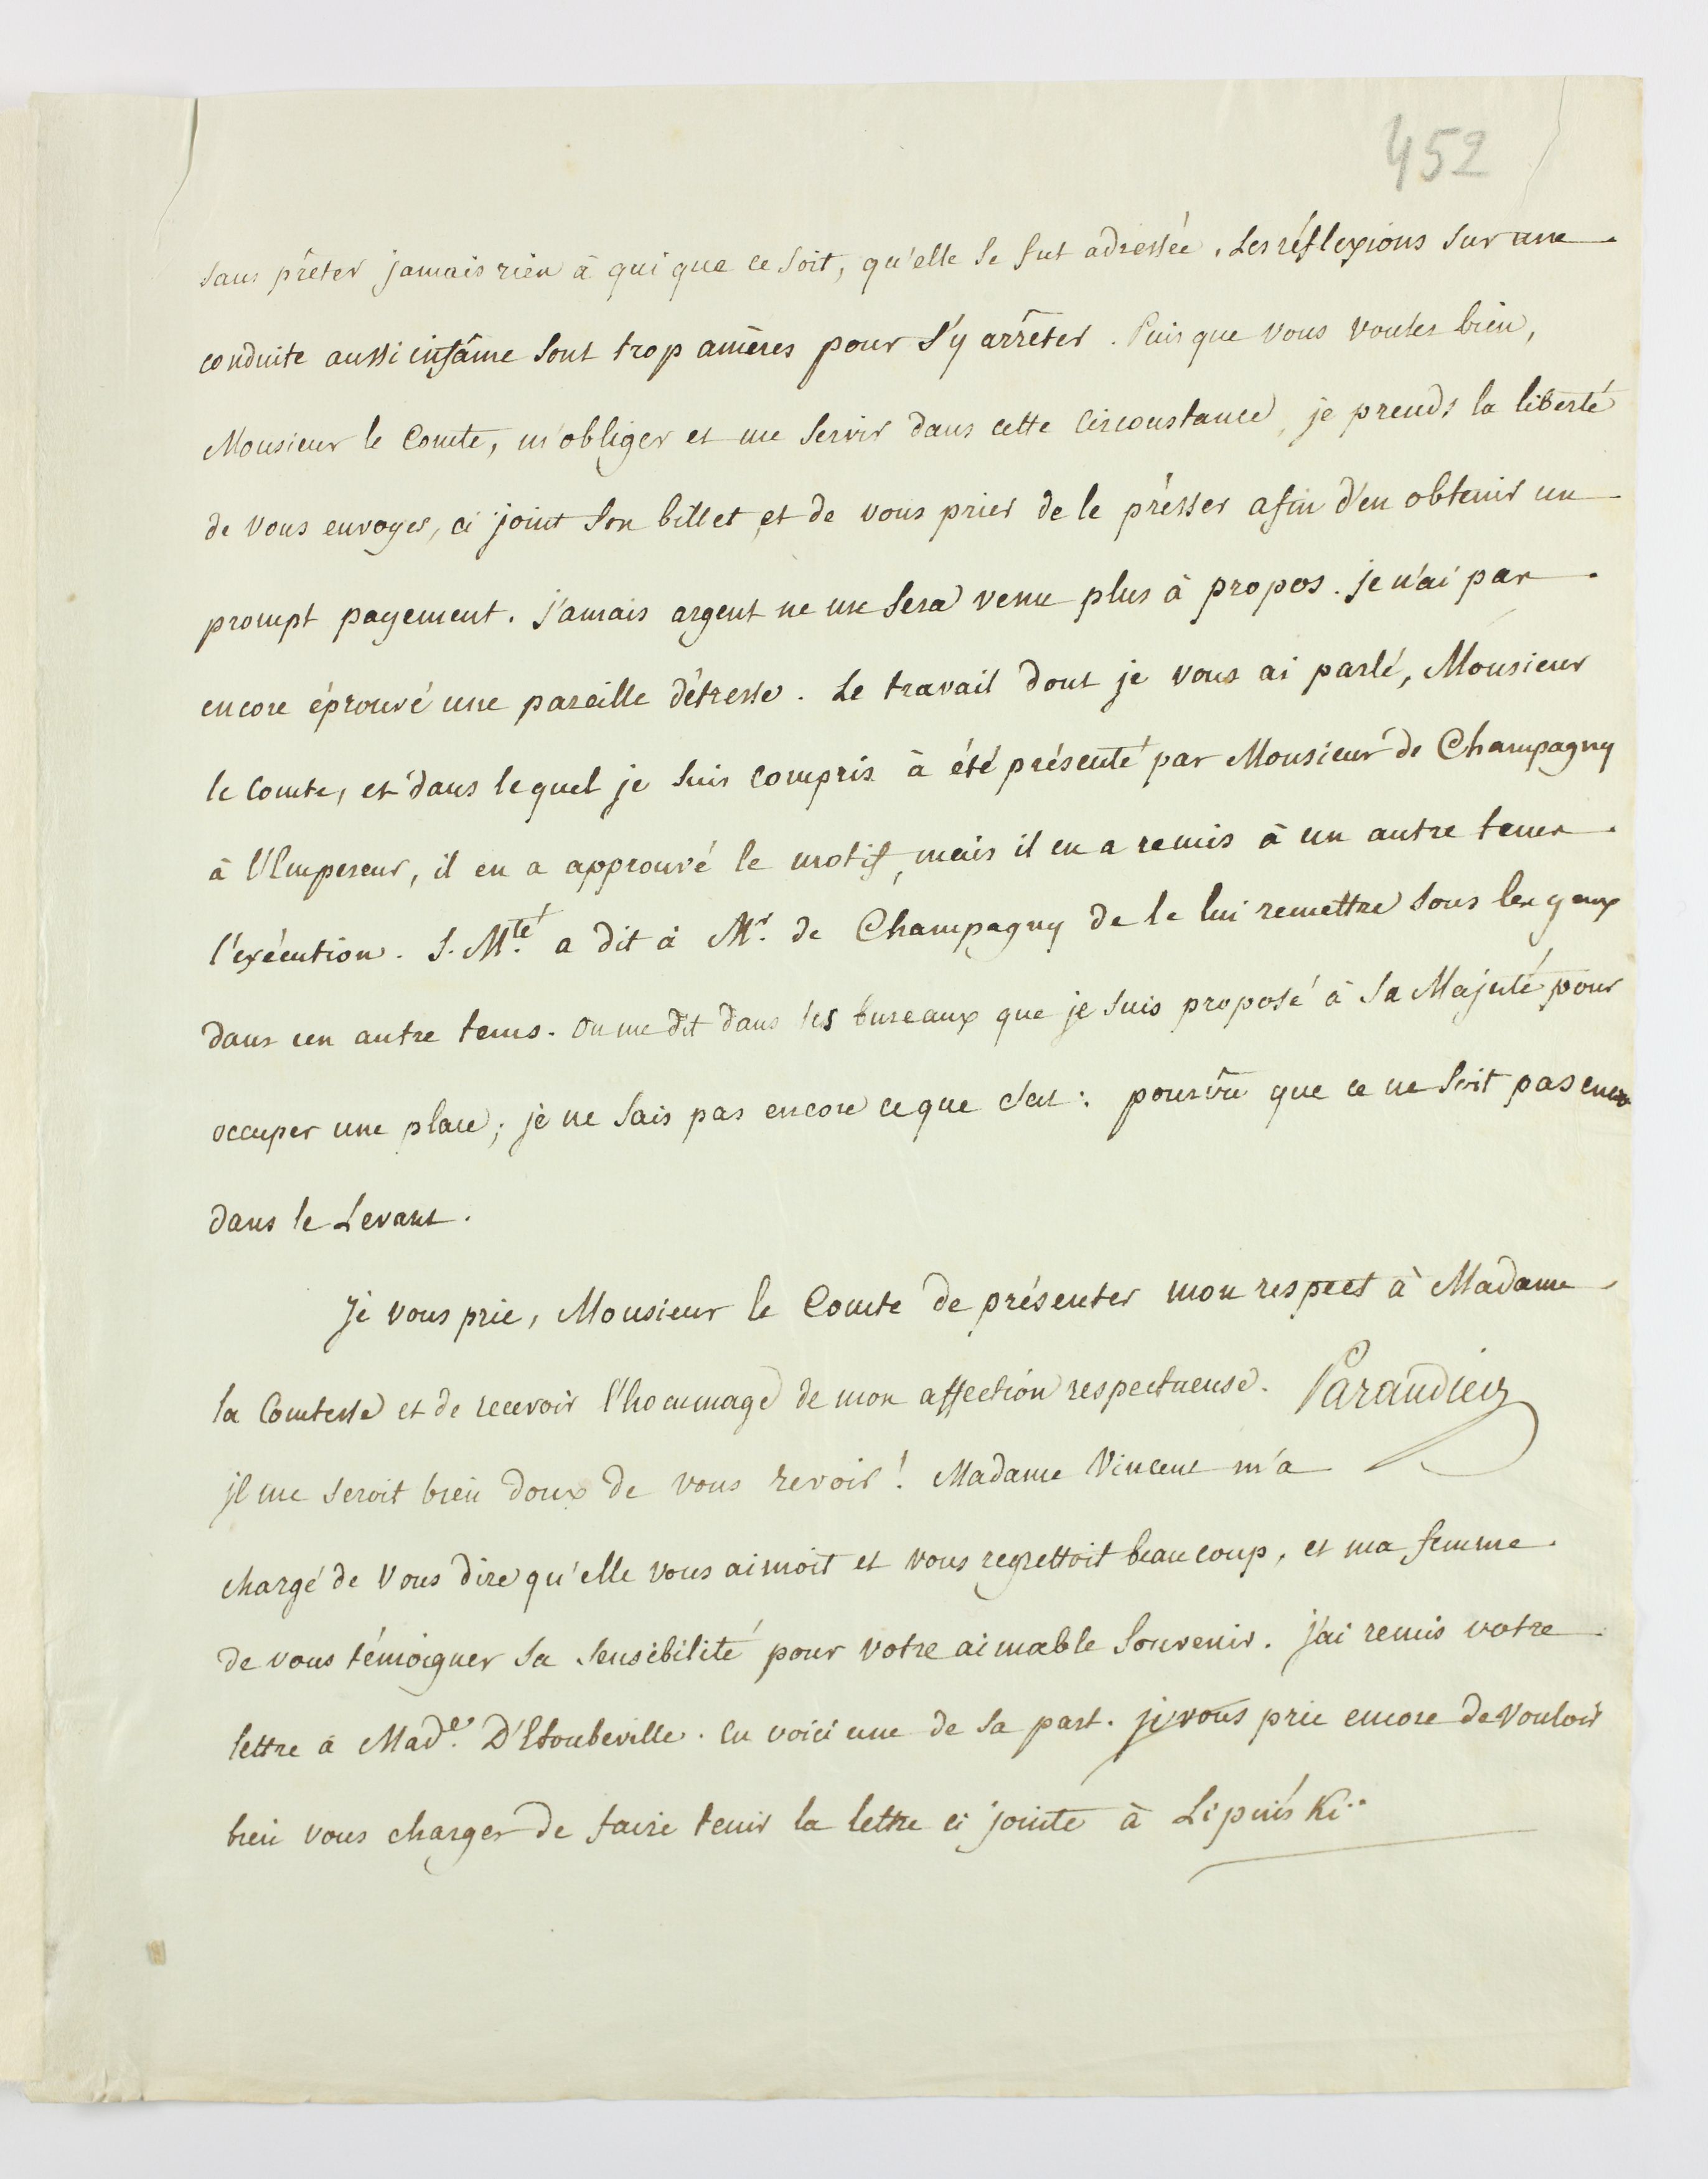 452
sans prêter jamais rien à qui que ce soit, qu'elle se fut adressée. Les réflexions sur une
conduite aussi infâme sont trop amères pour s'y arrêter. Puisque vous voulez bien,
Monsieur le Comte, m'obliger et me servir dans cette circonstance, je prends la liberté
de vous envoyer, ci joint son billet et de vous prier de le présser afin d'en obtenir un
prompt payement. Jamais argent ne me sera venu plus à propos. je n'ai pas
encore éprouvé une pareille détresse. Le travail dont je vous ai parlé, Monsieur
le Comte, et dans lequel je suis compris à été présenté par Monsieur de Champagny
à l'Empereur, il en a approuvé le motif, mais il en a remis à un autre tems
l'exécution. S. Mté a dit à Mr. de Champagny de le lui remettre sous les yeux
dans un autre tems. On me dit dans les bureaux que je suis proposé à Sa Majesté pour
occuper une place; je ne sais pas encore ce que c'est: pourvû que ce ne soit pas encor
dans le Levant.
Je vous prie, Monsieur le Comte de présenter mon respect à Madame
la Comtesse et de recevoir l'hommage de mon affection respectueuse. Parandier
il me seroit bien doux de vous revoir! Madame Vincent m'a
chargé de vous dire qu'elle vous aimoit et vous regrettoit beaucoup, et ma femme
de vous témoigner sa sensibilité pour votre aimable souvenir. j'ai remis votre
lettre à Made. D'Estoubeville. En voici une de sa part. je vous prie encore de vouloir
bien vous charger de faire tenir la lettre ci jointe à Lipinski